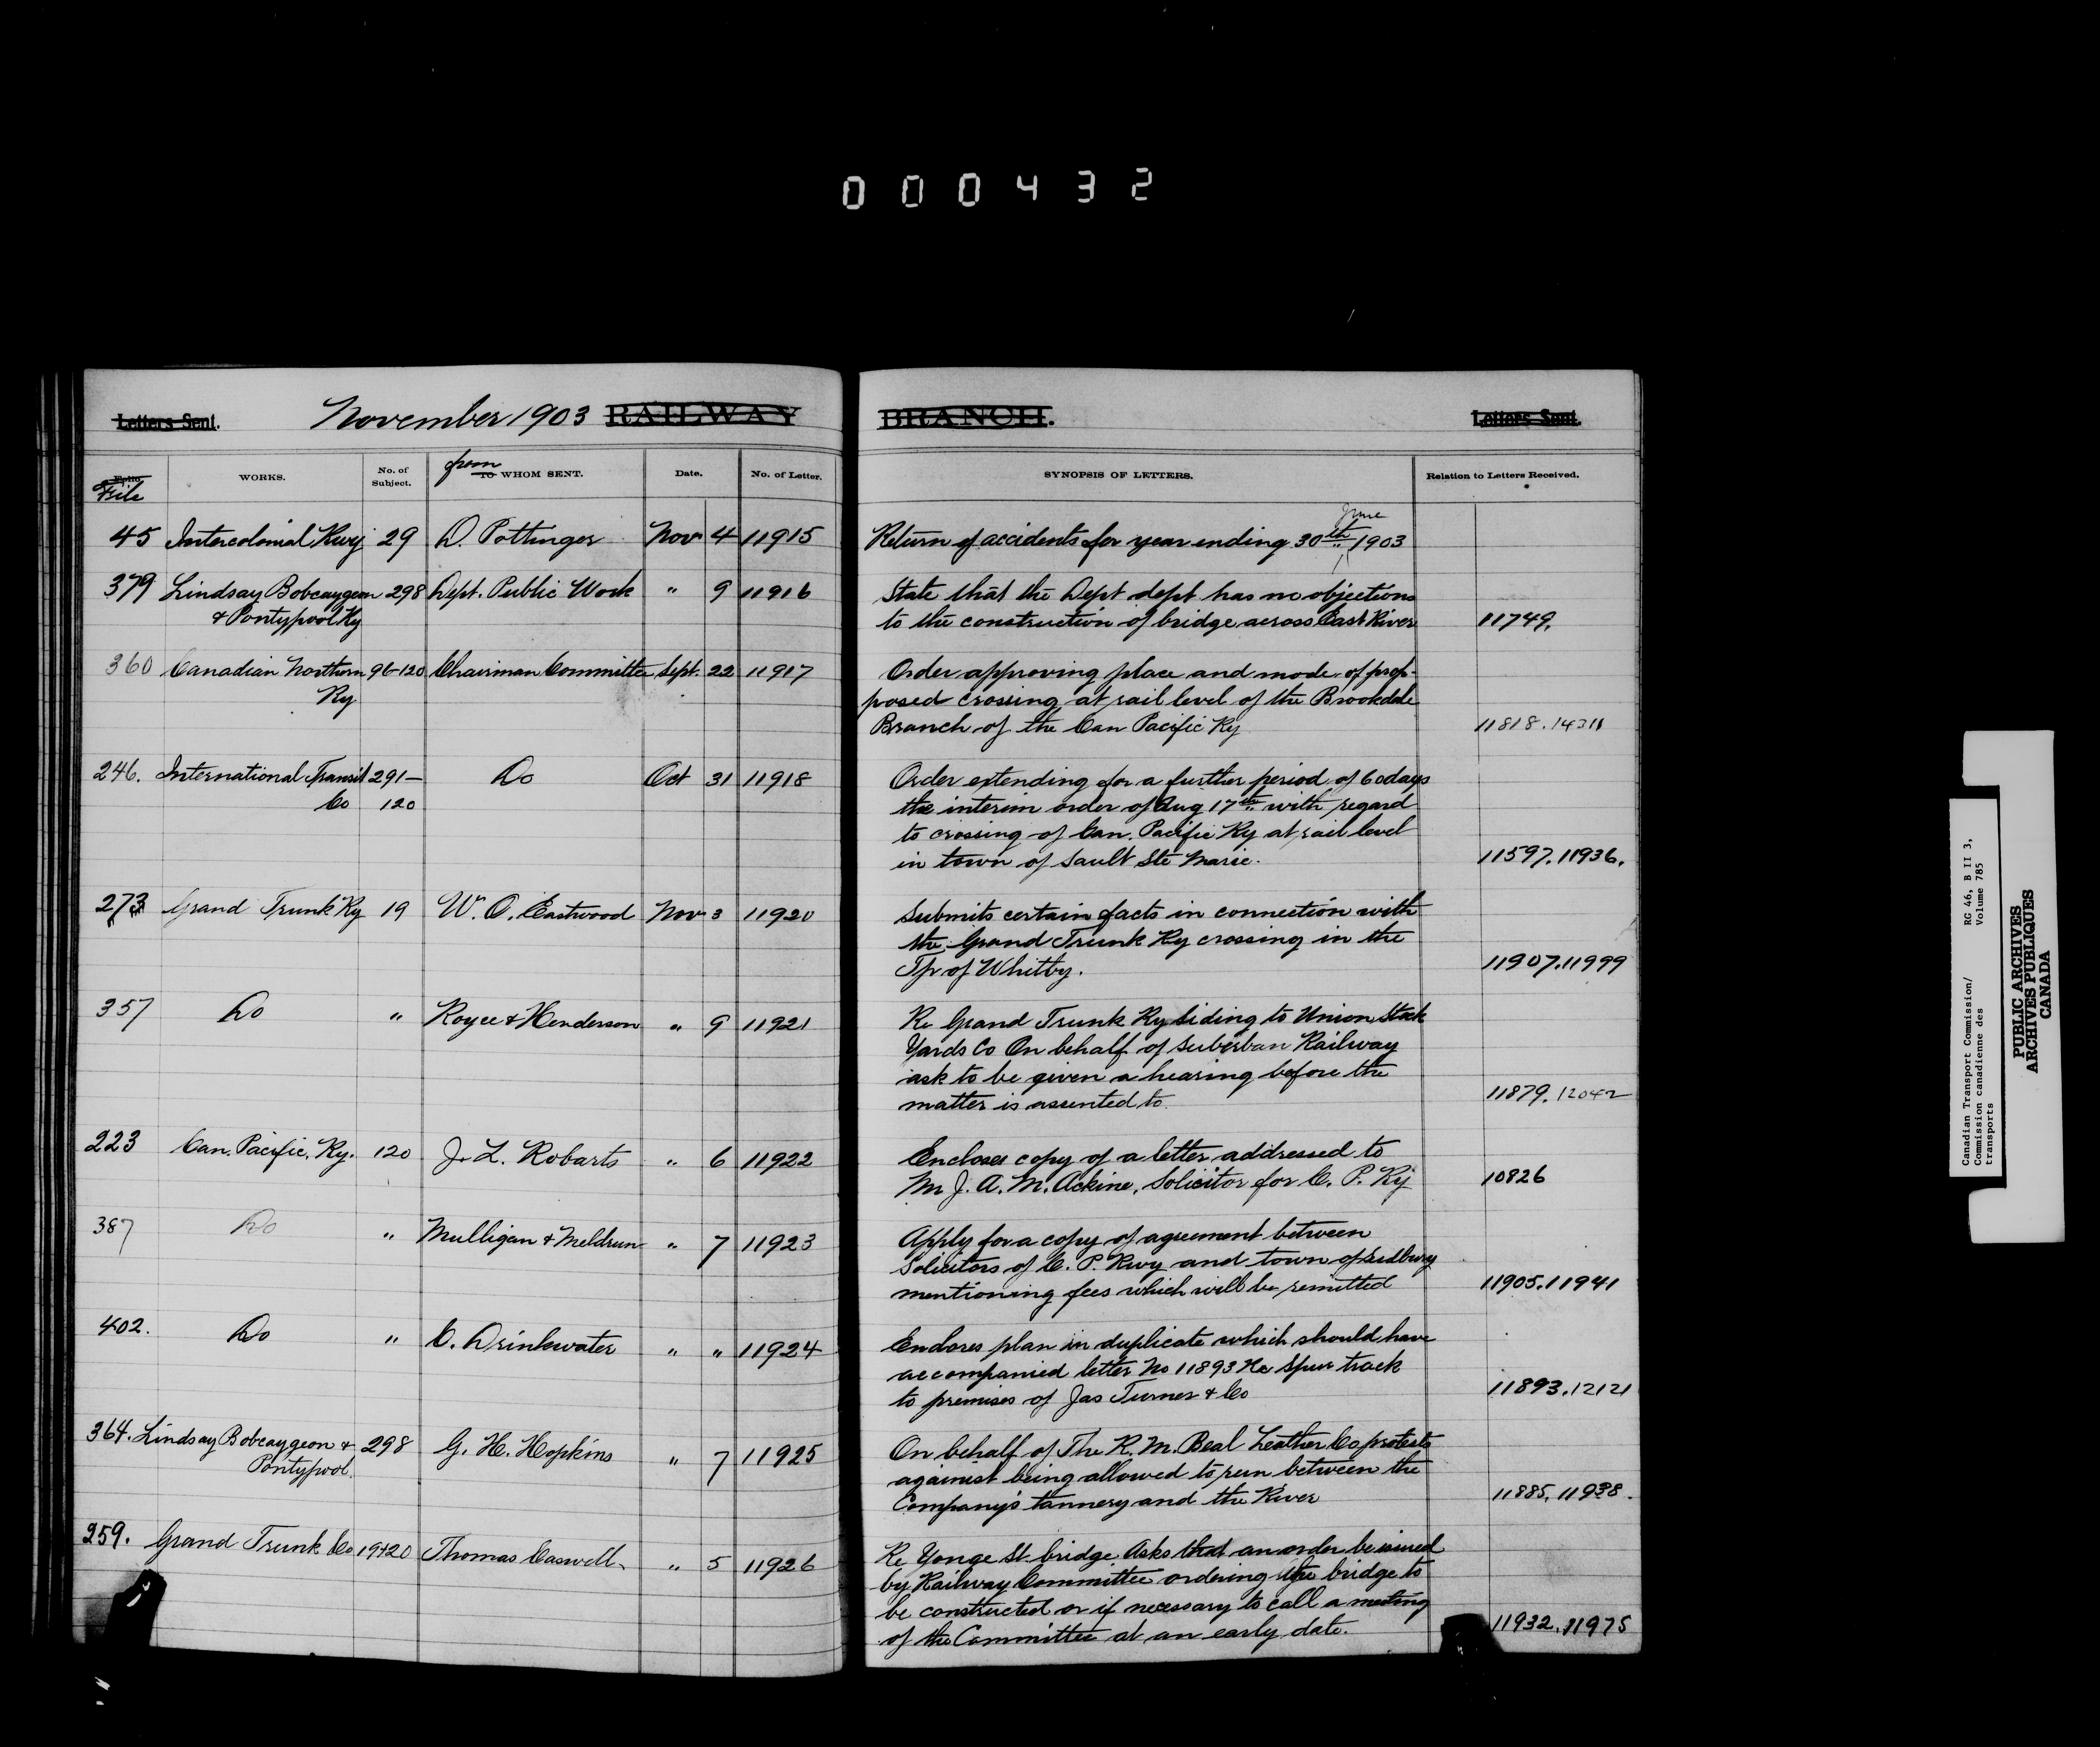 000432
Letters Sent. November 1903 RAILWAY BRANCH. Letters Sent.
File WORKS. No. of Subject. from TO WHOM SENT. Date. No. of Letter. SYNOPSIS OF LETTERS. Relation to Letters Received.
45 Intercolonial Rwy 29 D. Pottinger Nov 4 11915 Return of accidents for year ending 30th June 1903
379 Lindsay Bobcaygeon 298 Dept. Public Work " 9 11916 State that the Dept dept has no objections
& Pontypool Ry to the construction of bridge across East River 11749.
360 Canadian Northern 96-120 Chairman Committee Sept. 22 11917 Order approving place and mode of prop-
Ry. posed crossing at rail level of the Brookdale
Branch of the Can Pacific Ry 11818. 14311
246. International Transit 291- Do Oct 31 11918 Order extending for a further period of 60 days
Co 120 the interim order of Aug 17th with regard
to crossing of Can. Pacific Ry at rail level
in town of Sault Ste Marie. 11597. 11936.
273 Grand Trunk Ry 19 W. O. Eastwood Nov 3 11920 Submits certain facts in connection with
the Grand Trunk Ry crossing in the
Tp of Whitby. 11907. 11999
357 Do " Royce & Henderson " 9 11921 Re Grand Trunk Ry siding to Union Stock
Yards Co On behalf of Suberban Railway
ask to be given a hearing before the
matter is assented to. 11879. 12042
223 Can. Pacific. Ry. 120 J. L. Robarts " 6 11922 Encloses copy of a letter addressed to
Mr J. A. M. Ackine, Solicitor for C. P. Ry 10826
387 Do " Mulligan & Meldrum " 7 11923 Apply for a copy of agreement between
Solicitors of C. P. Rwy and town of Sudbury
mentioning fees which will be remitted 11905. 11941
402. Do " C. Drinkwater " " 11924 Encloses plan in duplicate which should have
accompanied letter No 11893 Re Spur track
to premises of Jas Turner & Co 11893. 12121
364. Lindsay Bobcaygeon & 298 G. H. Hopkins " 7 11925 On behalf of The R. M. Beal Leather Co protests
Pontypool. against being allowed to run between the
Company's tannery and the River 11885. 11938.
259. Grand Trunk Co 19+20 Thomas Caswell " 5 11926 Re Yonge St bridge Asks that an order be issued
by Railway Committee ordering the bridge to
be constructed or if necessary to call a meeting
of the Committee at an early date. 11932. 11975
Canadian Transport Commission/ RG 46, B II 3,
Commission canadienne des Volume 785
transports
PUBLIC ARCHIVES
ARCHIVES PUBLIQUES
CANADA